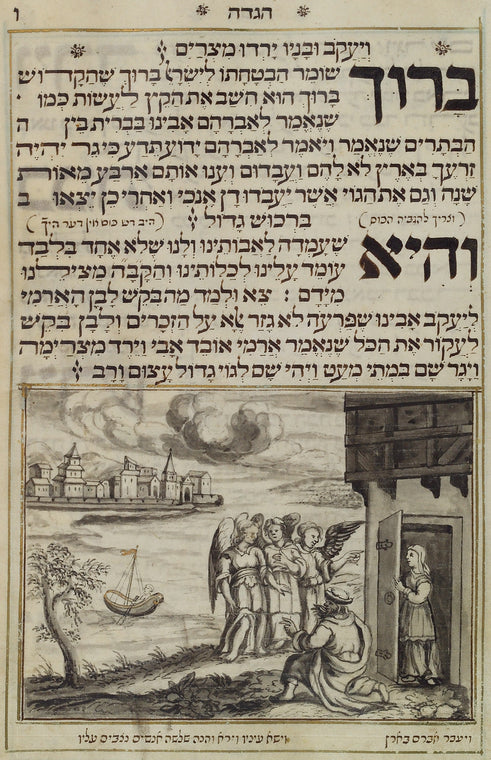 הגדה
ו
ויעקב ובניו ירדו מצרים
ברוך שומר הבטחתו לישרא ברוך שהקדוש
ברוך הוא חשב את הקץ לעשות כמו
שנאמר לאברהם אבינו בברית בין ה
הבתרים שנאמר ויאמר לאברהם ידוע תדע כי גר יהיה
זריעך באריץ לא להם ועבדום וענו אותם ארבע מאות
שנה וגם את הגוי אשר יעבדו דן אנכי ואחרי כן יצאו ב
(וצריך להגביה הכוס) ברכוש גדול (היב דש כוס וויין דער היך)
והיא שעמדה לאבותינו ולנו שלא אחד בלבד
עומד עלינו לכלותינו והקבה מצילנו
מידם : צא ולמד מה בקש לבן הארמי
ליעקב אבינו שפרעה לא גזר אלא על הזכרים ולבן בקש
לעקור את הכל שנאמר ארמי אובד אבי וירד מצרימה
ויגר שם במתי מעט ויהי שם לגוי גדול עצום ורב
ויעבר אברם בארץ
וישא עיניו וירא והנה שלשה אנשים נצבים עליו